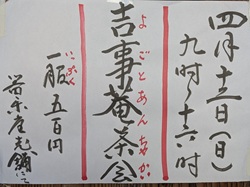 四月十二日(日)
九時~十六時
吉事菴茶会
よごとあんちゃかい
一服 五百円
いっぷく
若宗座老舗にて